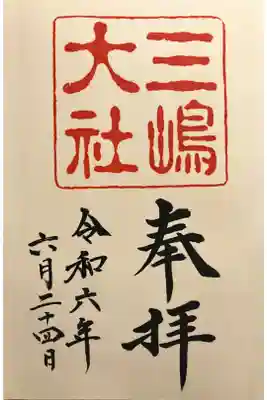 三嶋
大社
奉拝
令和六年
六月二十四日